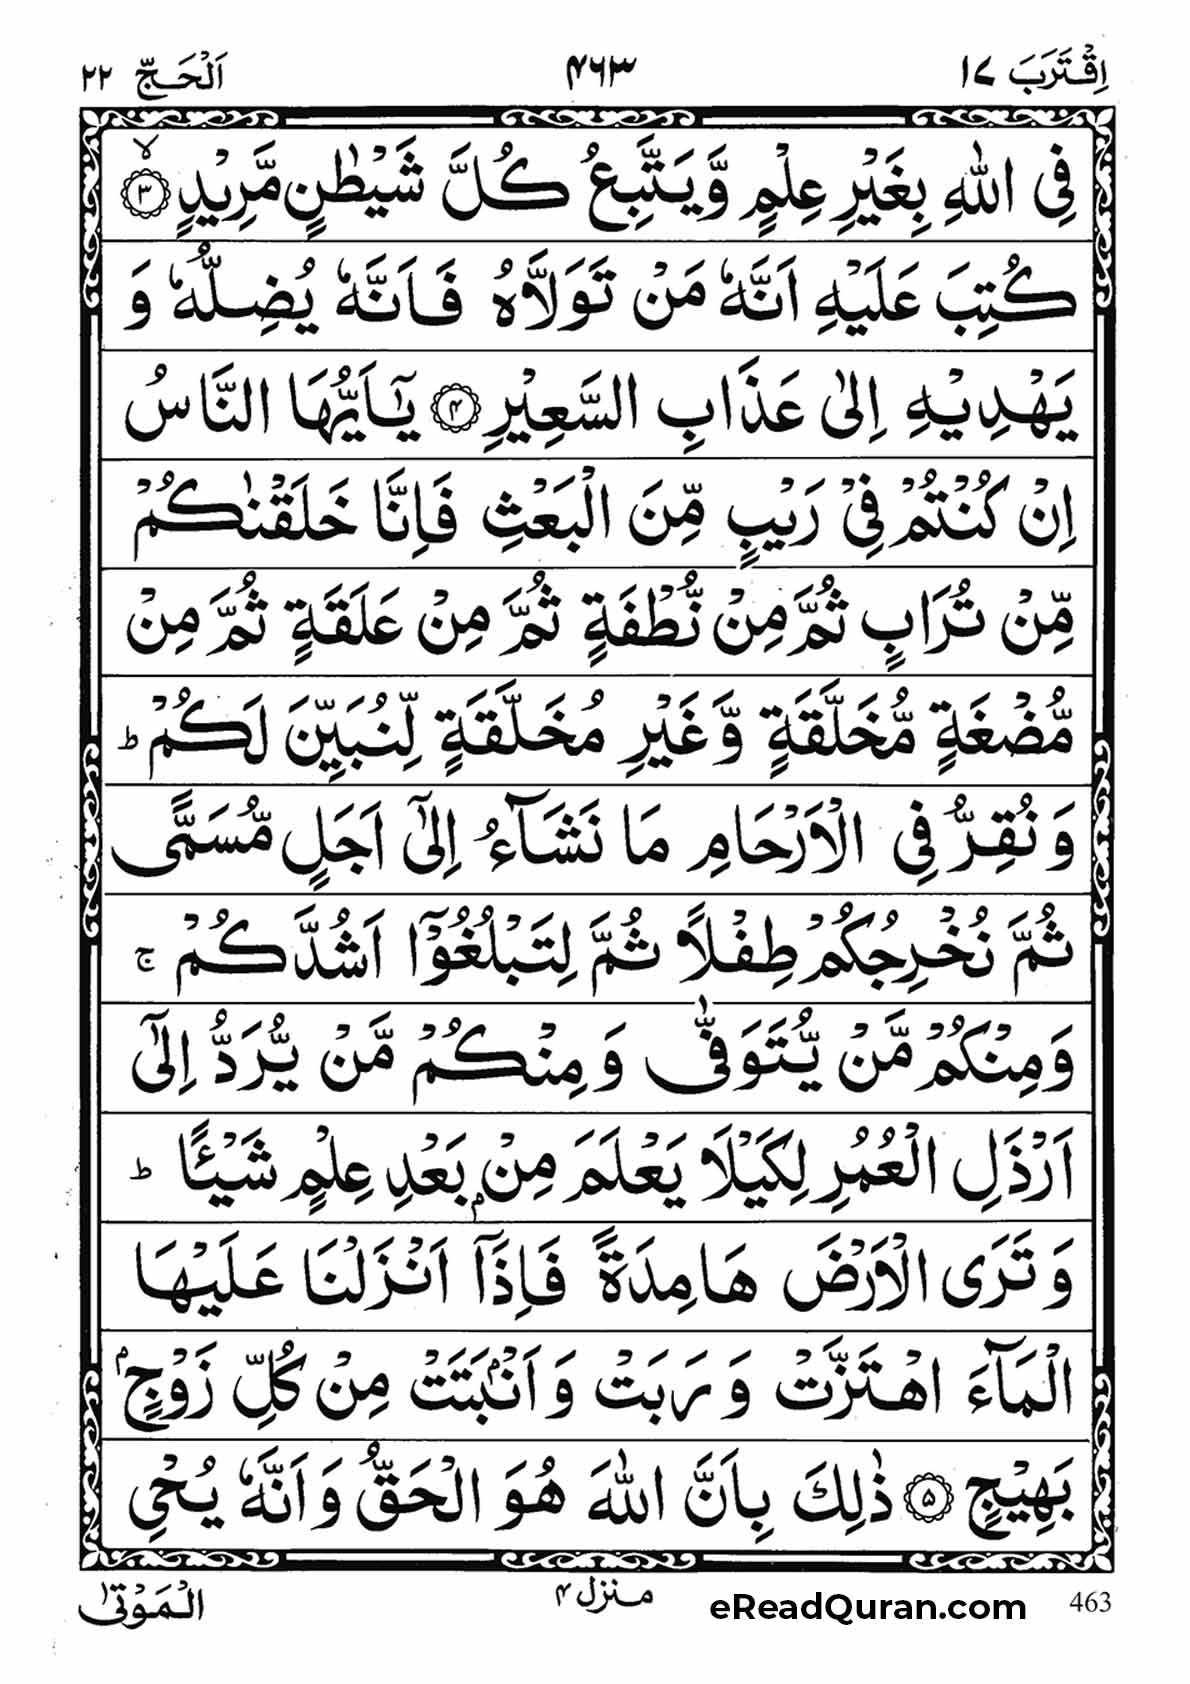 اِقْتَرَبَ ١٧ ٤٦٣ اَلْحَجّ ٢٢
فِى اللّٰهِ بِغَيْرِ عِلْمٍ وَّيَتَّبِعُ كُلَّ شَيْطٰنٍ مَّرِيْدٍ ۙ﴿٣﴾
كُتِبَ عَلَيْهِ اَنَّهٗ مَنْ تَوَلَّاهُ فَاَنَّهٗ يُضِلُّهٗ وَ
يَهْدِيْهِ اِلٰى عَذَابِ السَّعِيْرِ ﴿٤﴾ يٰۤاَيُّهَا النَّاسُ
اِنْ كُنْتُمْ فِىْ رَيْبٍ مِّنَ الْبَعْثِ فَاِنَّا خَلَقْنٰكُمْ
مِّنْ تُرَابٍ ثُمَّ مِنْ نُّطْفَةٍ ثُمَّ مِنْ عَلَقَةٍ ثُمَّ مِنْ
مُّضْغَةٍ مُّخَلَّقَةٍ وَّغَيْرِ مُخَلَّقَةٍ لِّنُبَيِّنَ لَكُمْ ؕ
وَنُقِرُّ فِى الْاَرْحَامِ مَا نَشَآءُ اِلٰۤى اَجَلٍ مُّسَمًّى
ثُمَّ نُخْرِجُكُمْ طِفْلًا ثُمَّ لِتَبْلُغُوْۤا اَشُدَّكُمْ ۚ
وَمِنْكُمْ مَّنْ يُّتَوَفّٰى وَمِنْكُمْ مَّنْ يُّرَدُّ اِلٰۤى
اَرْذَلِ الْعُمُرِ لِكَيْلَا يَعْلَمَ مِنْۢ بَعْدِ عِلْمٍ شَيْـًٔا ؕ
وَتَرَى الْاَرْضَ هَامِدَةً فَاِذَاۤ اَنْزَلْنَا عَلَيْهَا
الْمَآءَ اهْتَزَّتْ وَرَبَتْ وَاَنْۢبَتَتْ مِنْ كُلِّ زَوْجٍۢ
بَهِيْجٍ ﴿٥﴾ ذٰلِكَ بِاَنَّ اللّٰهَ هُوَ الْحَقُّ وَاَنَّهٗ يُحْىِ
الْمَوْتٰى منزل ٤ eReadQuran.com 463